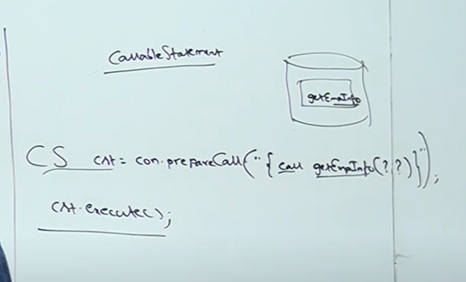 CallableStatement
getEmpInfo
CS cst = con.prepareCall("{call getEmpInfo(?,?)}");
cst.execute();